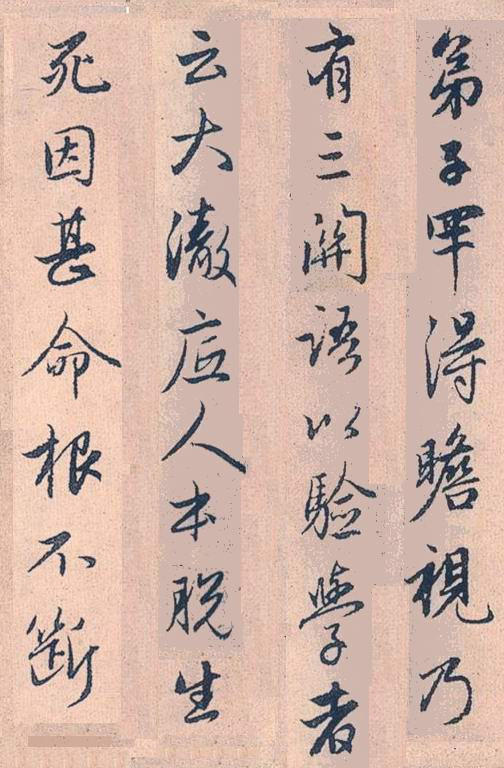 弟子罕得瞻視乃
有三關語以驗學者
云大澈底人本脱生
死因甚命根不斷